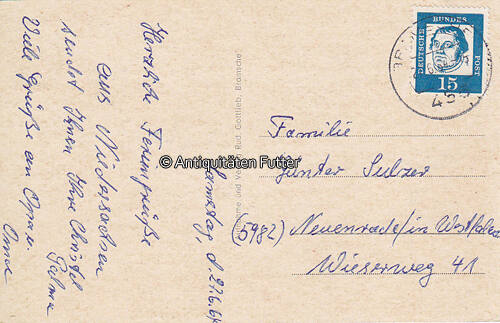 Herzliche Feriengrüße
aus Niedersachsen
sendet Ihnen Ihre Christel
Viele Grüße an Opa u.
Oma
Samstag, d. 27.6.64
Aufnahme und Verlag Rud. Gottlieb, Bramsche
© Antiquitäten Futter
DEUTSCHE
BUNDES
POST
15
Familie
Günter Sulzer
(5982) Neuenrade/in Westfalen
Wieserweg 41